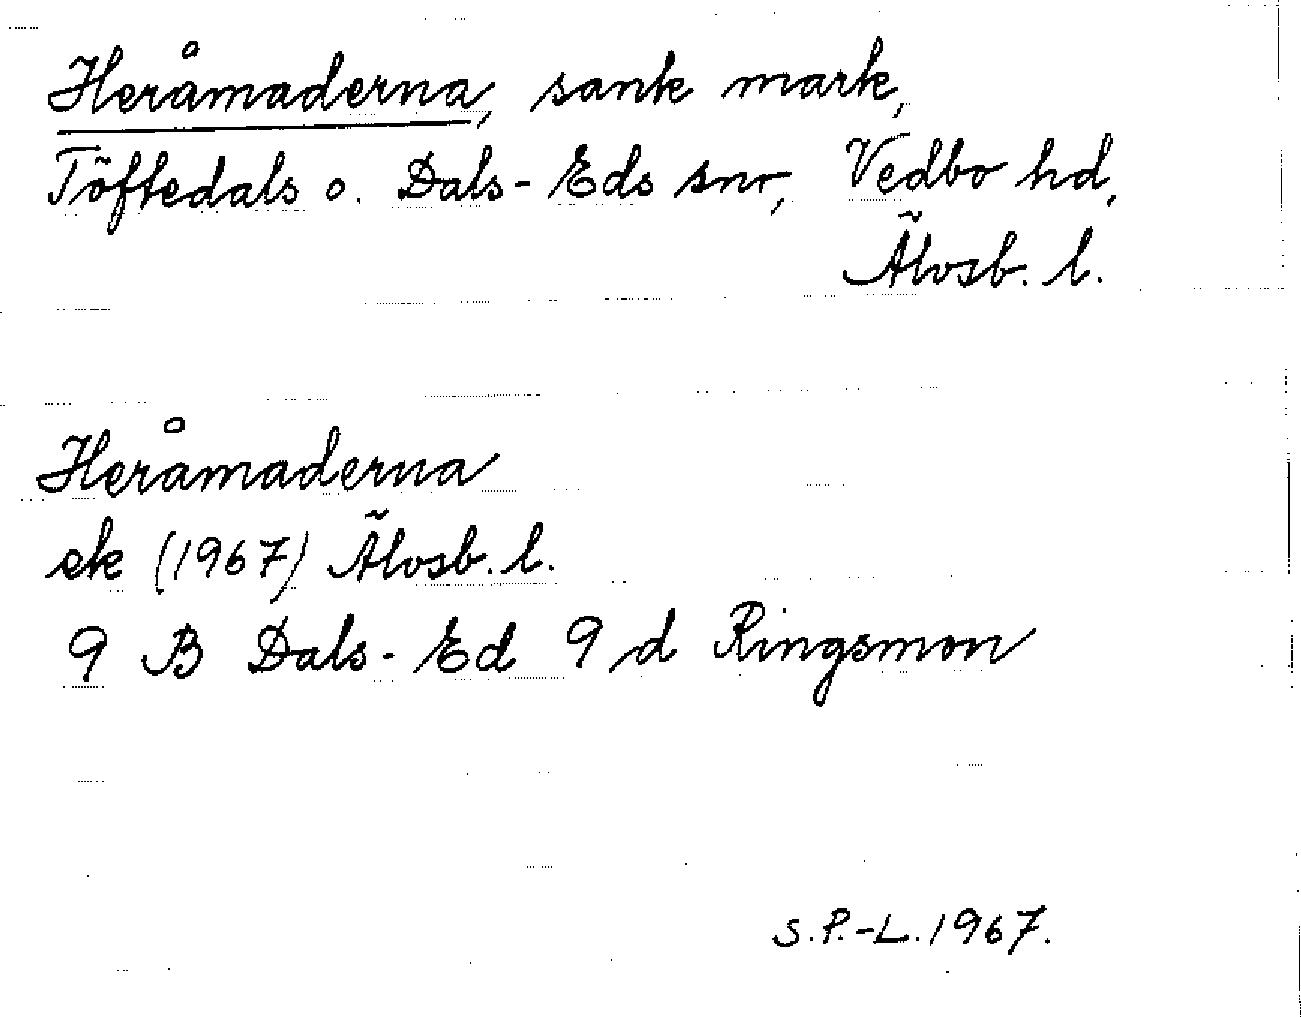 Heråmaderna, sank mark,
Töftedals o. Dals-Eds snr, Vedbo hd,
Älvsb. l.
Heråmaderna
ek (1967) Älvsb. l.
9 B Dals-Ed 9 d Ringsmon
S.P.-L. 1967.